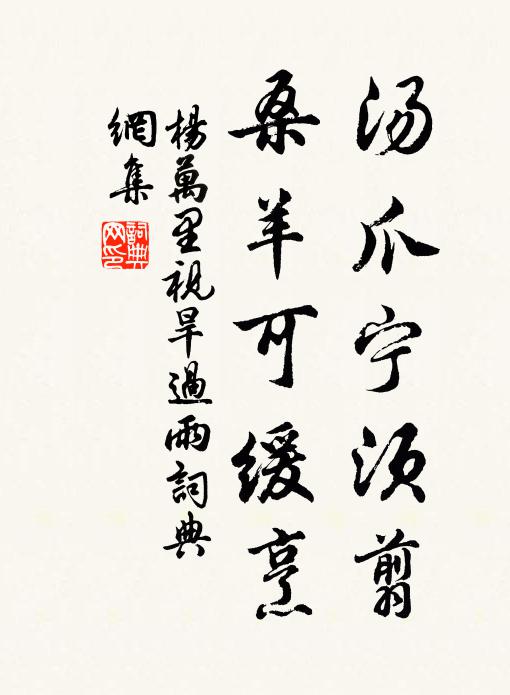 汤爪宁须翦
桑羊可缓烹
楊萬里視旱過雨詞典
網集
詞典网印